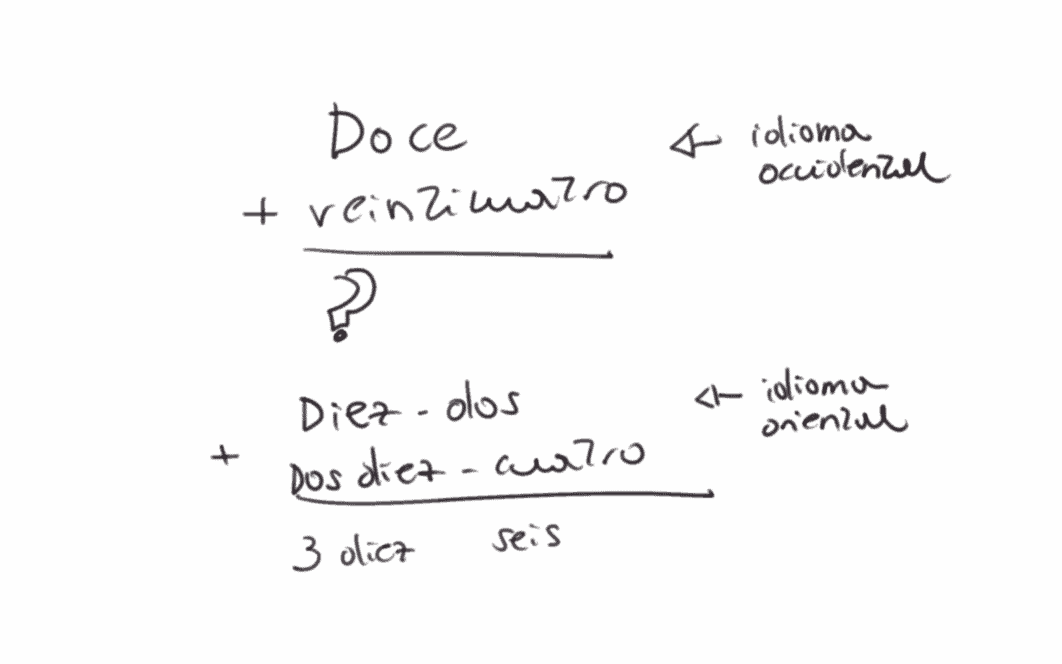 Doce
+ veinticuatro
?
idioma
occidental
Diez - dos
+ Dos diez - cuatro
3 diez seis
idioma
oriental